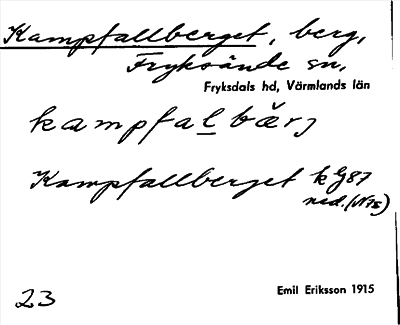 Kampfallberget, berg,
Fryksände sn,
Fryksdals hd, Värmlands län
kampfalbärj
Kampfallberget k G87
ned. (N75)
23
Emil Eriksson 1915